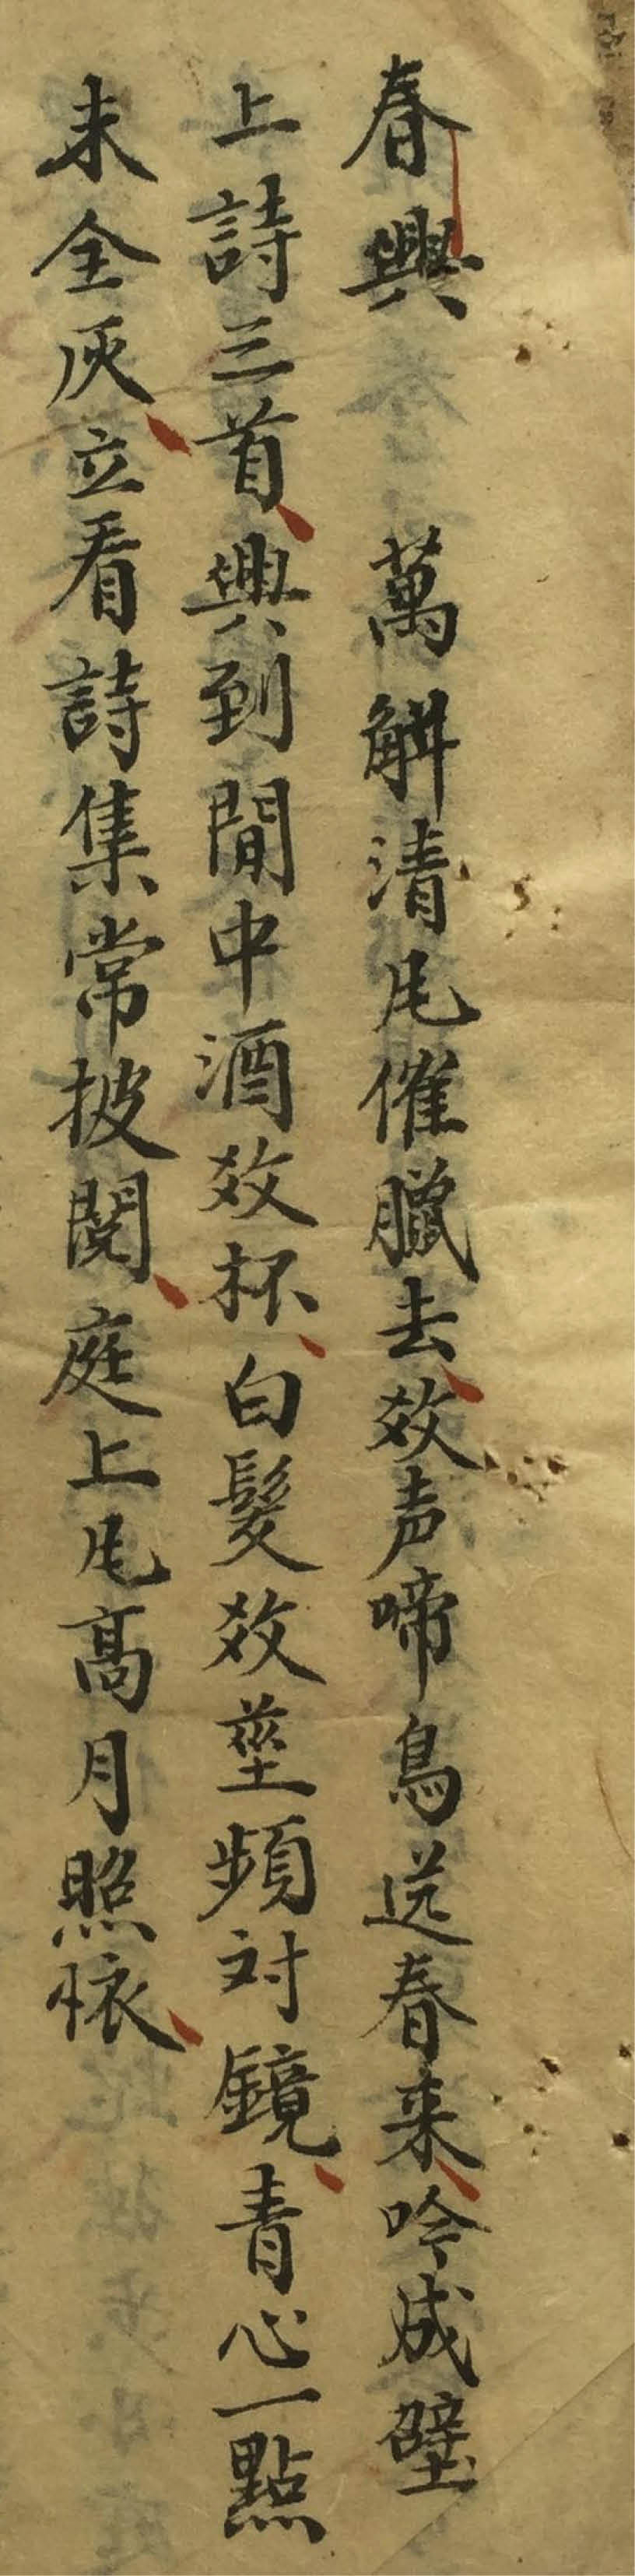 春興 萬斛清風催臘去数声啼鳥送春来吟成壁
上詩三首興到閒中酒数杯白髮数莖頻対鏡青心一點
未全灰立看詩集常披閱庭上風高月照懷